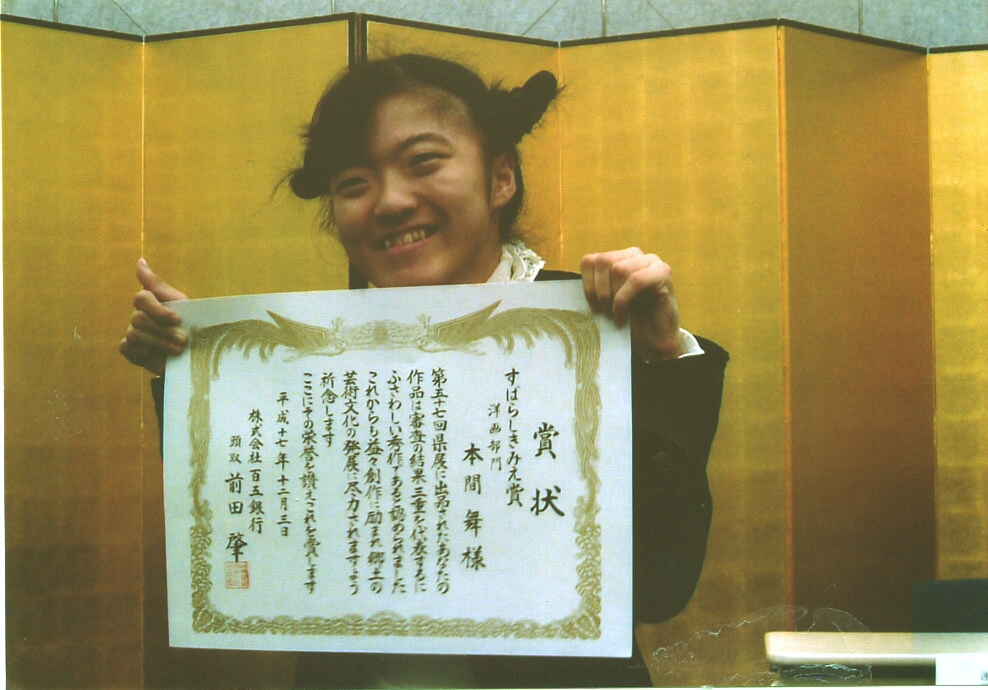 賞状
すばらしきみえ賞
洋画部門
本間舞様
第五十七回県展に出品されたあなたの
作品は審査の結果三重を代表するに
ふさわしい秀作であると認められました
これからも益々創作に励まれ郷土の
芸術文化の発展に尽力されますよう
祈念します
ここにその栄誉を讃えこれを賞します
平成十七年十二月三日
株式会社百五銀行
頭取 前田肇